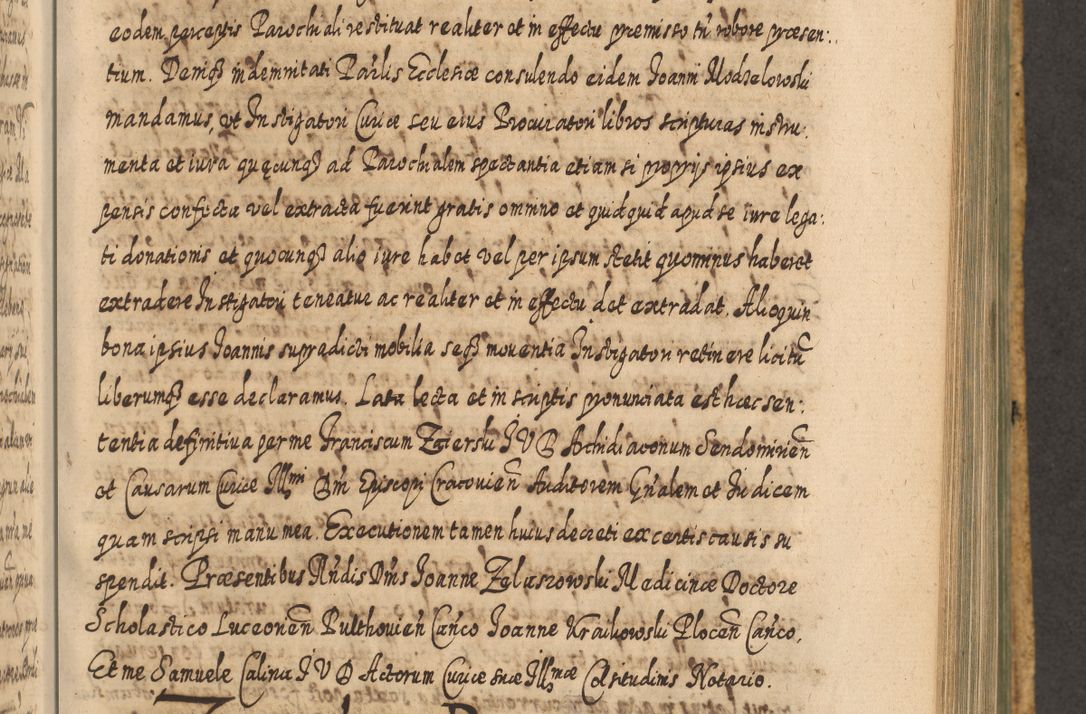 eodem perceptis Parochiali restituat realiter et in effectu premisso tñ robore præsen:
tium. Deniq3 indemnitati Parlis Ecclesiæ consulendo eidem Joanni Modzelowski
mandamus, vt Instigatori Curiæ seu eius Procuratori libros scripturas instru:
menta et iura quęcunq3 ad Parochialem spectantia etiam si proprijs ipsius ex
pensis confecta vel extracta fuerint gratis omnino et quidquid apud se iure lega:
ti donationis et quocunq3 alio iure habet vel per ipsum stetit quominus haberet
extradere Instigatori teneatur ac realiter et in effectu det extradat. Alioquin
bona ipsius Joannis supradicti mobilia seq3 mouentia Instigatori retinere licitū
liberumq3 esse declaramus. Lata lecta et in scriptis pronunciata est hæc sen:
tentia definitiua per me Franciscum Zgierski J V D Achidiaconum Sendomirien̄
et Causarum Curiæ Illmi Dm̃ Episcopi Cracovien̄ Auditorem Gñalem et Judicem
quam scripsi manu mea. Executionem tamen huius decreti ex certis causis su
spendit. Præsentibus Rñdis Dm̃s Joanne Zeluszowski Medicinæ Doctore
Scholastico Luceonen̄ Pulthouien̄ Can̄co Joanne Kraikowski Plocen̄ Can̄co,
Et me Samuele Calina J V D Actorum Curiæ suæ Illmæ Celsitudinis Notario.